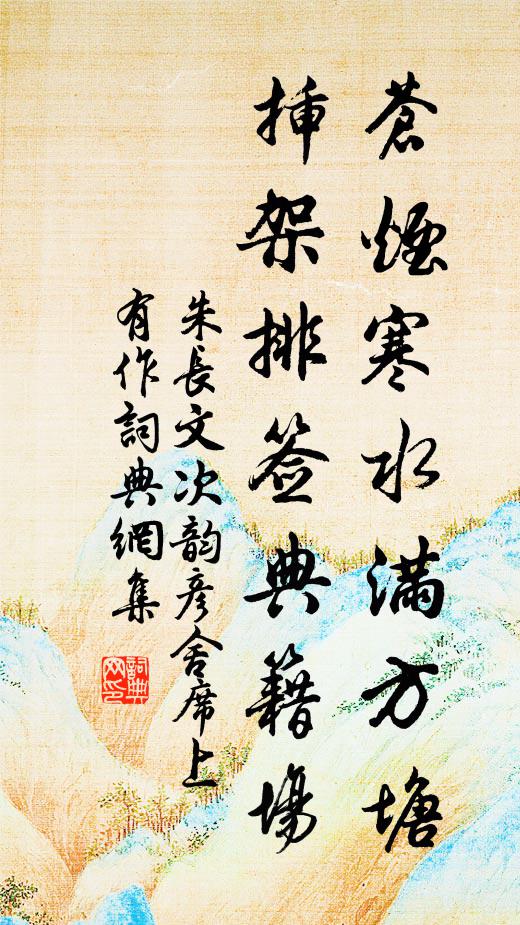 蒼煙寒水滿方塘
挿架排签典籍場
朱長文次韵彦舍席上
有作詞典網集
詞典網印